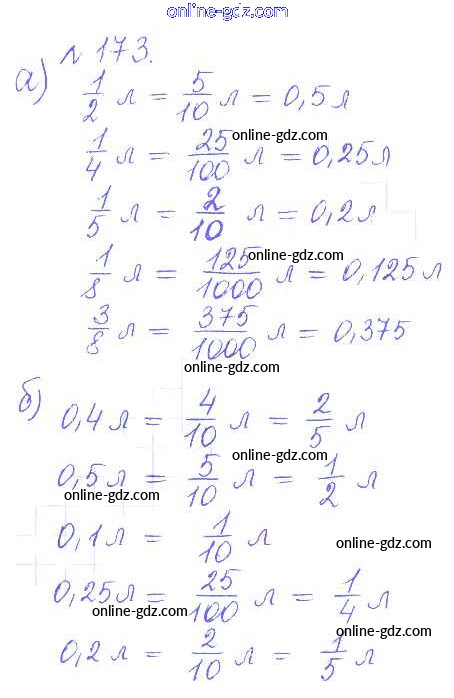 online-gdz.com
№ 173.
а)
1/2 л = 5/10 л = 0,5 л
online-gdz.com
1/4 л = 25/100 л = 0,25 л
online-gdz.com
1/5 л = 2/10 л = 0,2 л
online-gdz.com
1/8 л = 125/1000 л = 0,125 л
online-gdz.com
3/8 л = 375/1000 л = 0,375
online-gdz.com
б)
0,4 л = 4/10 л = 2/5 л
online-gdz.com
0,5 л = 5/10 л = 1/2 л
online-gdz.com
0,1 л = 1/10 л
online-gdz.com
0,25 л = 25/100 л = 1/4 л
online-gdz.com
online-gdz.com
0,2 л = 2/10 л = 1/5 л